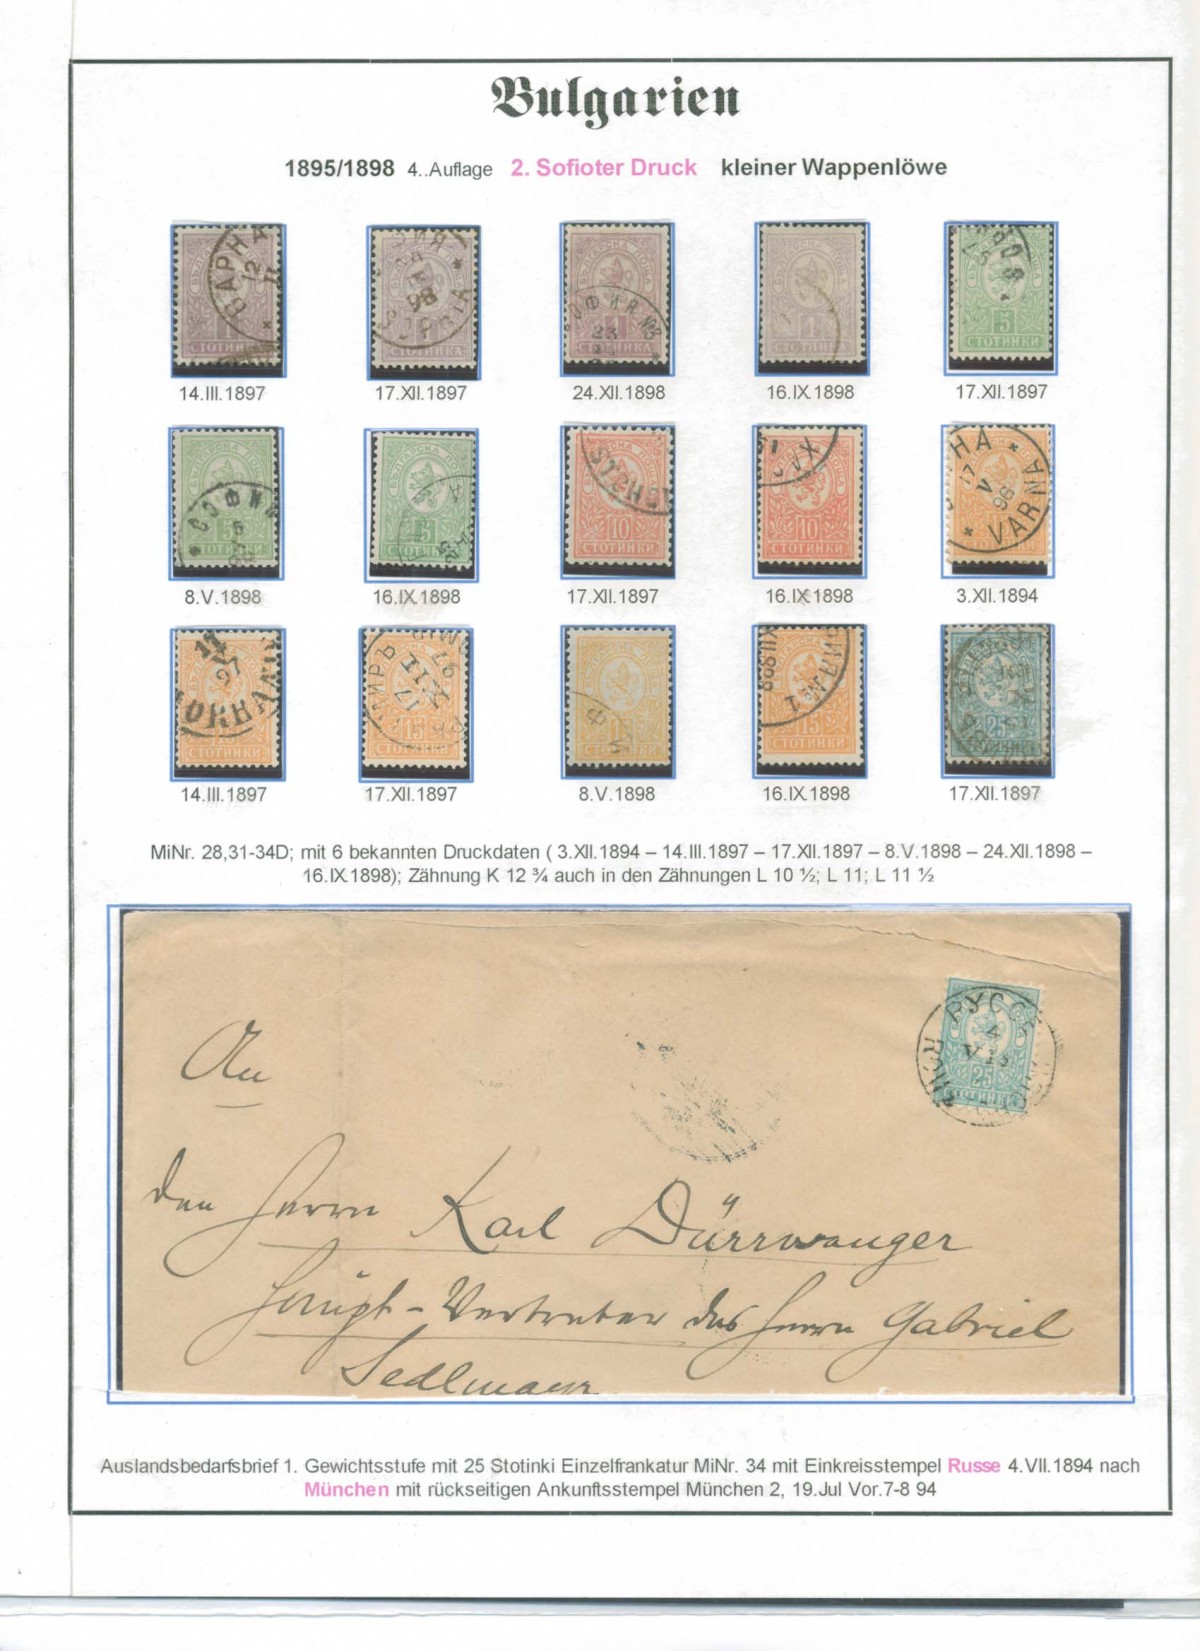 Bulgarien
1895/1898 4..Auflage 2. Sofioter Druck kleiner Wappenlöwe
14.III.1897 17.XII.1897 24.XII.1898 16.IX.1898 17.XII.1897
8.V.1898 16.IX.1898 17.XII.1897 16.IX.1898 3.XII.1894
14.III.1897 17.XII.1897 8.V.1898 16.IX.1898 17.XII.1897
MiNr. 28,31-34D; mit 6 bekannten Druckdaten ( 3.XII.1894 – 14.III.1897 – 17.XII.1897 – 8.V.1898 – 24.XII.1898 –
16.IX.1898); Zähnung K 12 ¾ auch in den Zähnungen L 10 ½; L 11; L 11 ½
РУССЕ
25
СТОТИНКИ
An
den Herrn Karl Dürrwanger
Haupt-Vertreter des Herrn Gabriel
Sedlmayr
Auslandsbedarfsbrief 1. Gewichtsstufe mit 25 Stotinki Einzelfrankatur MiNr. 34 mit Einkreisstempel Russe 4.VII.1894 nach
München mit rückseitigen Ankunftsstempel München 2, 19.Jul Vor.7-8 94